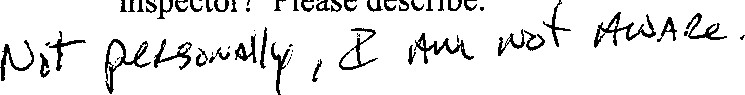 inspector? Please describe.
Not personally, I am not aware.